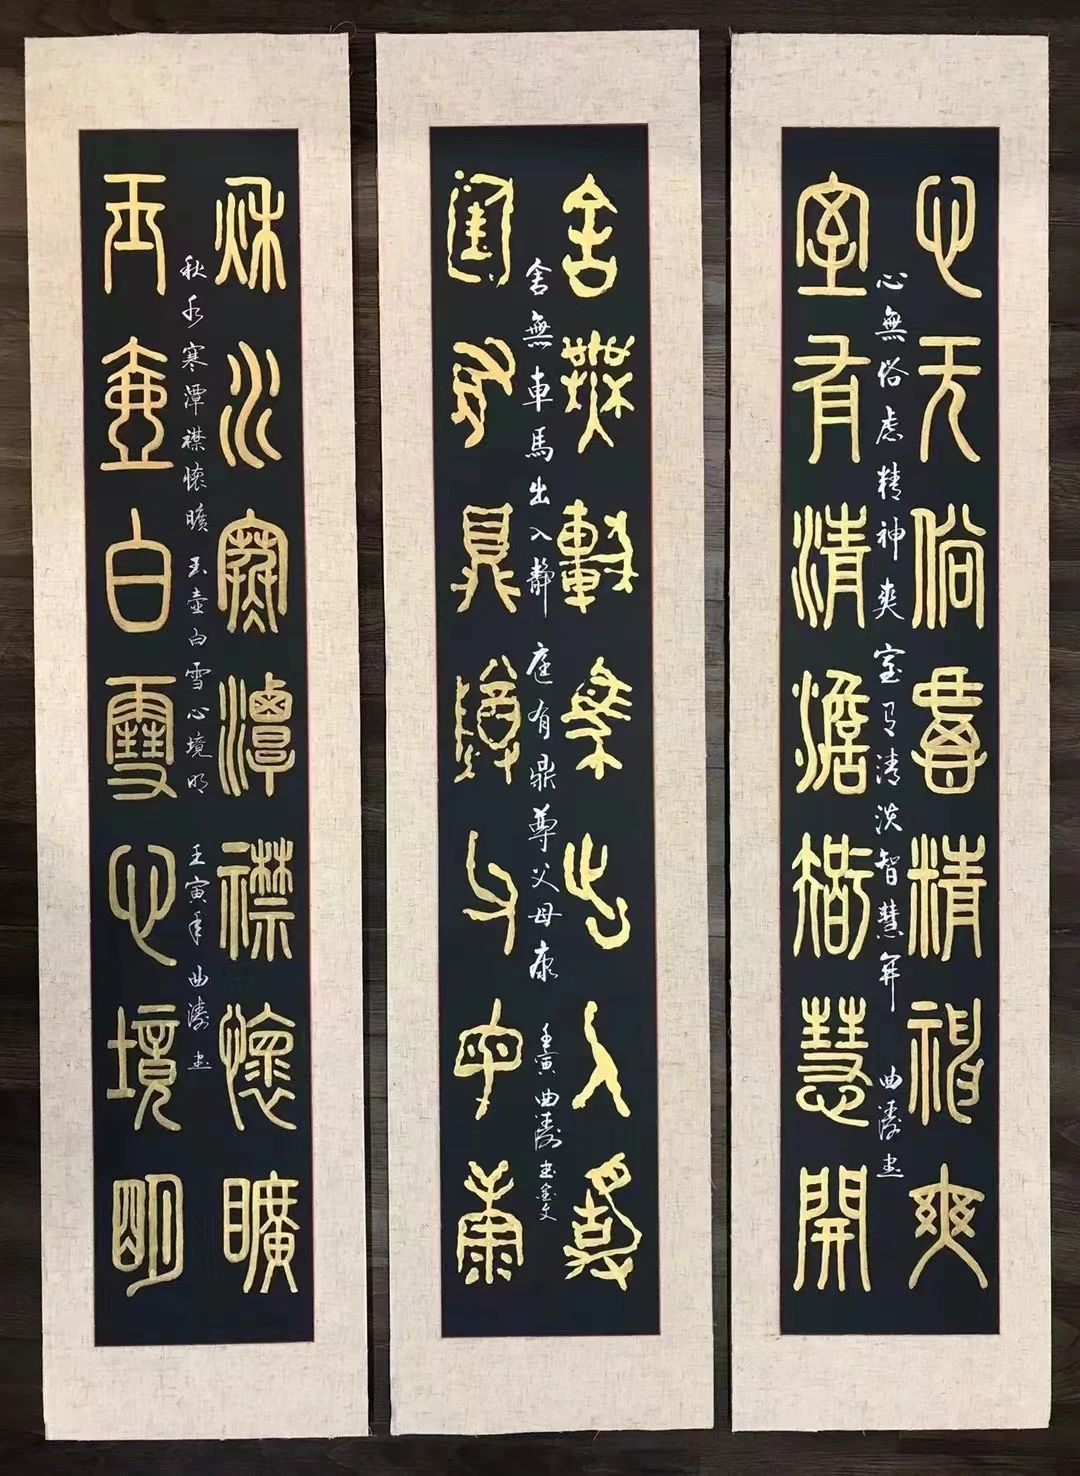 心无俗慮精神爽
心無俗虑精神爽 室有清淡智慧開 曲濤书
室有清澹智慧開
舍無車馬出入靜
舍無車馬出入靜 庭有鼎尊父母康 壬寅曲濤书金文
庭有鼎尊父母康
秋水寒潭襟懷曠
秋水寒潭襟懷曠 玉壺白雪心境明 壬寅年曲濤书
玉壺白雪心境明